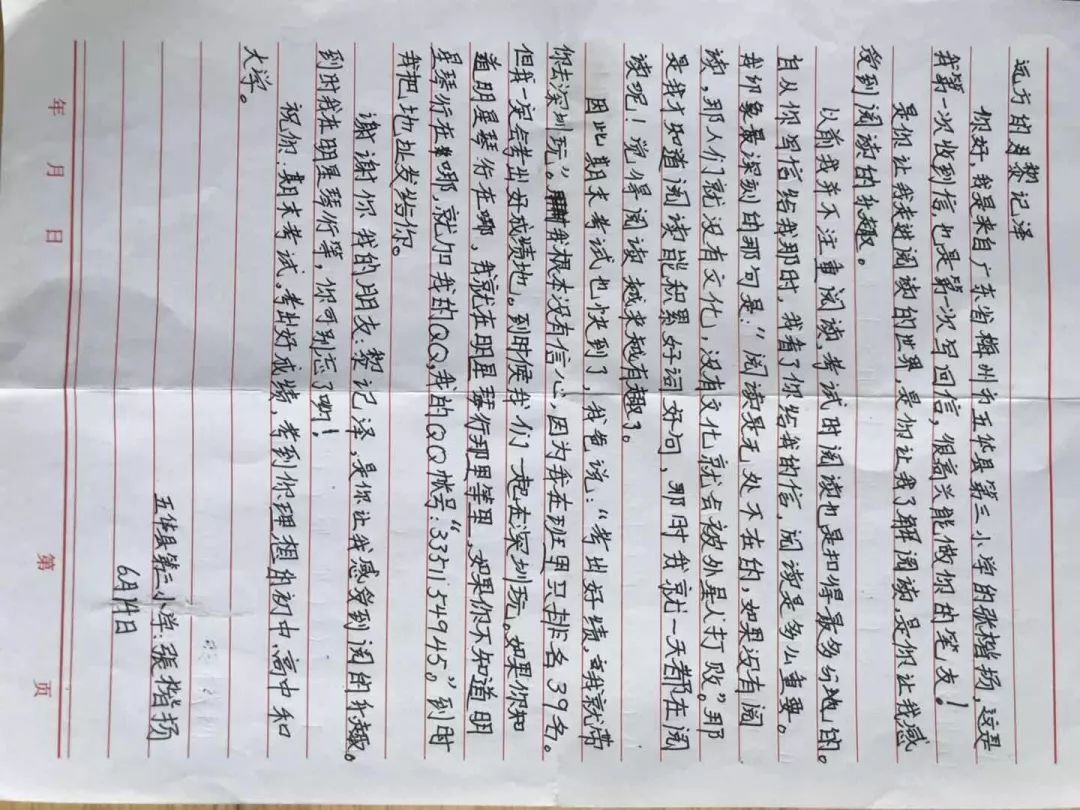 远方的黎记泽
你好,我是来自广东省梅州市五华县第三小学的张楷扬,这是
我第一次收到信,也是第一次写回信,很高兴能做你的笔友!
是你让我走进阅读的世界,是你让我了解阅读,是你让我感
受到阅读的乐趣。
以前我并不注重阅读,考试时阅读也是扣得最多分地的。
自从你写信给我那时,我看了你给我的信,阅读是多么重要。
我印象最深刻的那句是:“阅读是无处不在的,如果没有阅
读,那人们就没有文化,没有文化就会被外星人打败。”那
是我才知道阅读能积累好词好句,那时我就一天都在阅
读呢!觉得阅读越来越有趣了。
因此期末考试也快到了,我爸说:“考出好绩,我就带
你去深圳玩”。我根本没有信心,因为我在班里只排名39名。
但我一定会考出好成绩地。到时候我们一起在深圳玩。如果你知
道明星琴行在哪,我就在明星琴行那里等里,如果你不知道明
星琴行在哪,就加我的QQ,我的QQ帐号:“3351154945。”到时
我把地址发给你。
谢谢你我的朋友:黎记泽,是你让我感受到阅的乐趣。
到时我在明星琴行等,你可别忘了啊!
祝你:期末考试,考出好成绩,考到你理想的初中、高中和
大学。
五华县第三小学:張楷扬
6月14日
年 月 日
第 页